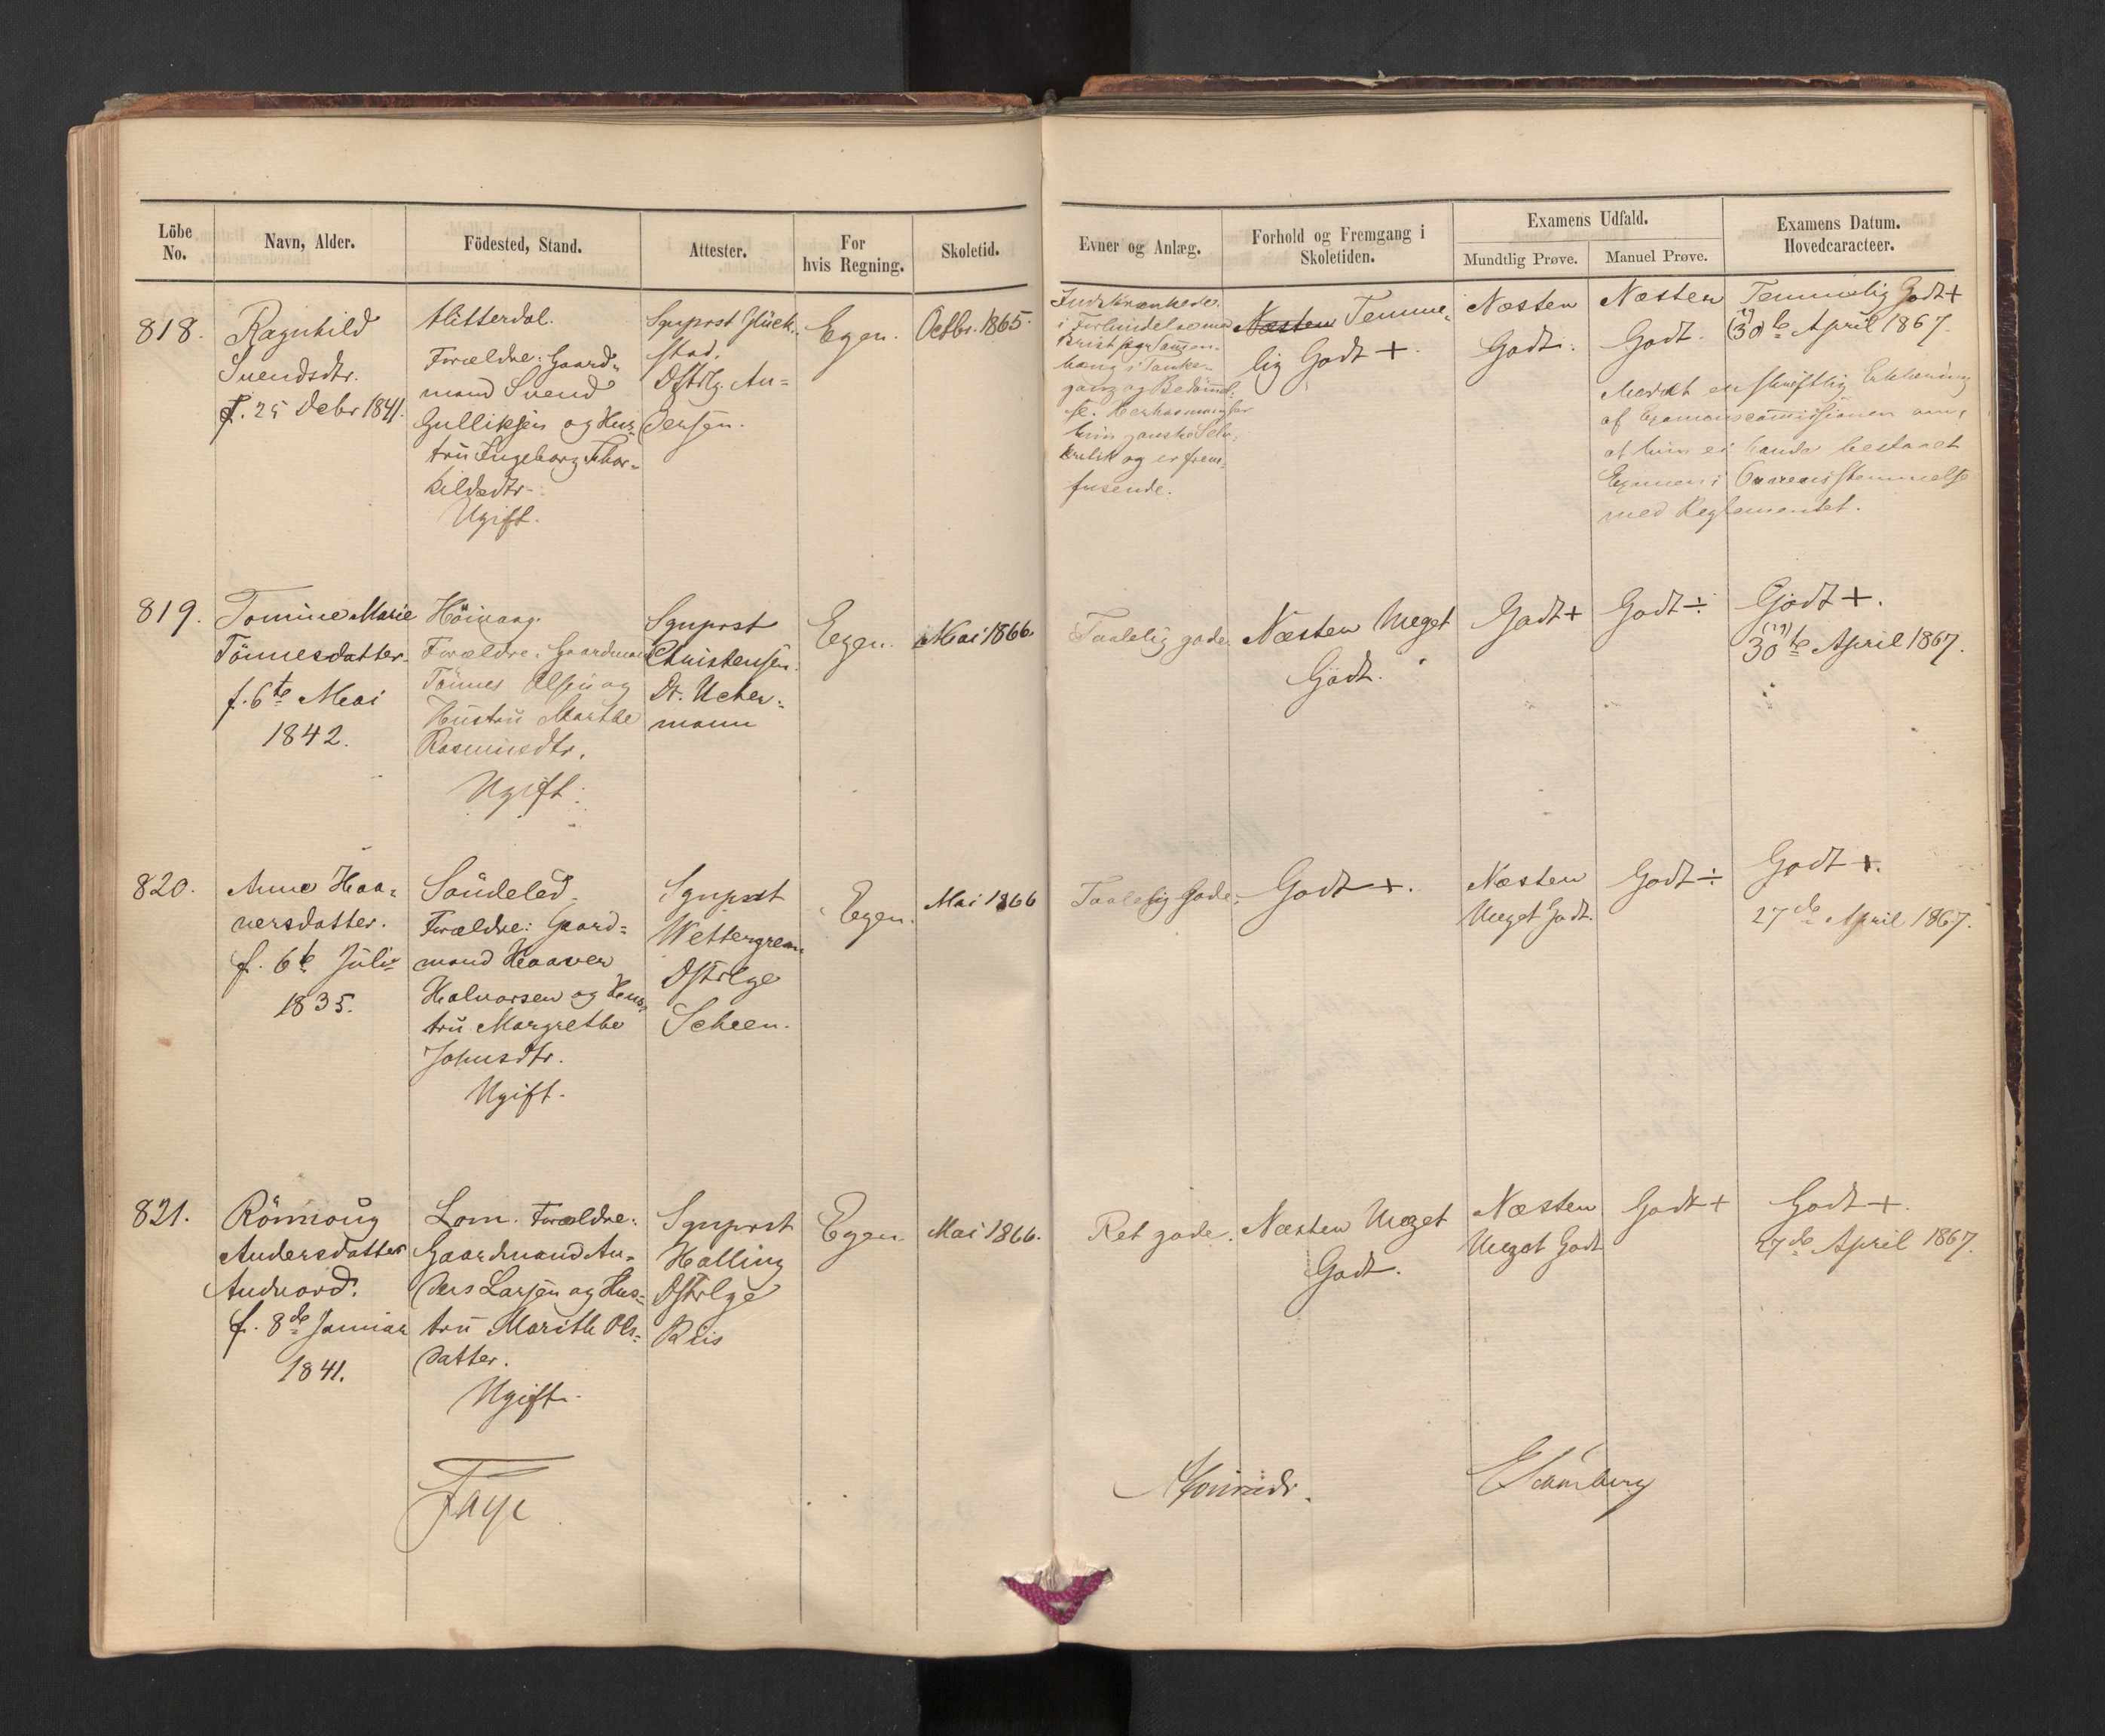 Löbe No.
Navn, Alder.
Födested, Stand.
Attester.
For hvis Regning.
Skoletid.
Evner og Anlæg.
Forhold og Fremgang i Skoletiden.
Examens Udfald.
Mundtlig Prøve.
Manuel Prøve.
Examens Datum. Hovedcaracteer.
818.
Ragnhild
Svendsdtr.
f. 25 Debr 1841.
Hitterdal.
Forældre: Gaard-
mand Svend
Gulliksen og Hus-
tru Ingeborg Thor-
kildsdtr.
Ugift.
Sgnprst Glück-
stad.
Dstrlg. An-
dersen.
Egen.
Octbr. 1865.
Indskrænkede.
i Tanke-
gang og Bedömel-
se.
hun ganske
og er frem-
fusende.
Næsten Temme-
lig Godt +.
Næsten
Godt.
Næsten
Godt.
Temmelig Godt +
30te April 1867.
en skriftlig Erklæring
af Examenscommissionen om,
at hun ei havde bestaaet
Examen i Overensstemmelse
med Reglementet.
819.
Tomine Marie
Tönnesdatter.
f. 6te Mai
1842.
Höivaag.
Forældre: Gaardmand
Tönnes Olsen og
Hustru Marthe
Rasmusdtr.
Ugift.
Sgnprst
Christensen.
Dr. Ucher-
mann
Egen.
Mai 1866.
Taalelig gode.
Næsten Meget
Godt.
Godt +
Godt ÷
Godt +.
30te April 1867.
820.
Anne Haa-
versdatter.
f. 6te Juli
1835.
Söndeled.
Forældre: Gaard-
mand Haaver
Halvorsen og Hus-
tru Margrethe
Johnsdtr.
Ugift.
Sgnprst
Wettergreen
Dstrlge
Scheen.
Egen.
Mai 1866
Taalelig Gode.
Godt +.
Næsten
Meget Godt.
Godt ÷
Godt +.
27de April 1867.
821.
Rönnoug
Andersdatter
Andvord.
f. 8de Januar
1841.
Lom. Forældre:
Gaardmand An-
ders Larsen og Hus-
tru Marith Ols-
datter.
Ugift.
Sgnprst
Halling
Dstrlge
Riis
Egen.
Mai 1866.
Ret gode.
Næsten Meget
Godt.
Næsten
Meget Godt
Godt +
Godt +.
27de April 1867.
Faye
ESchönberg